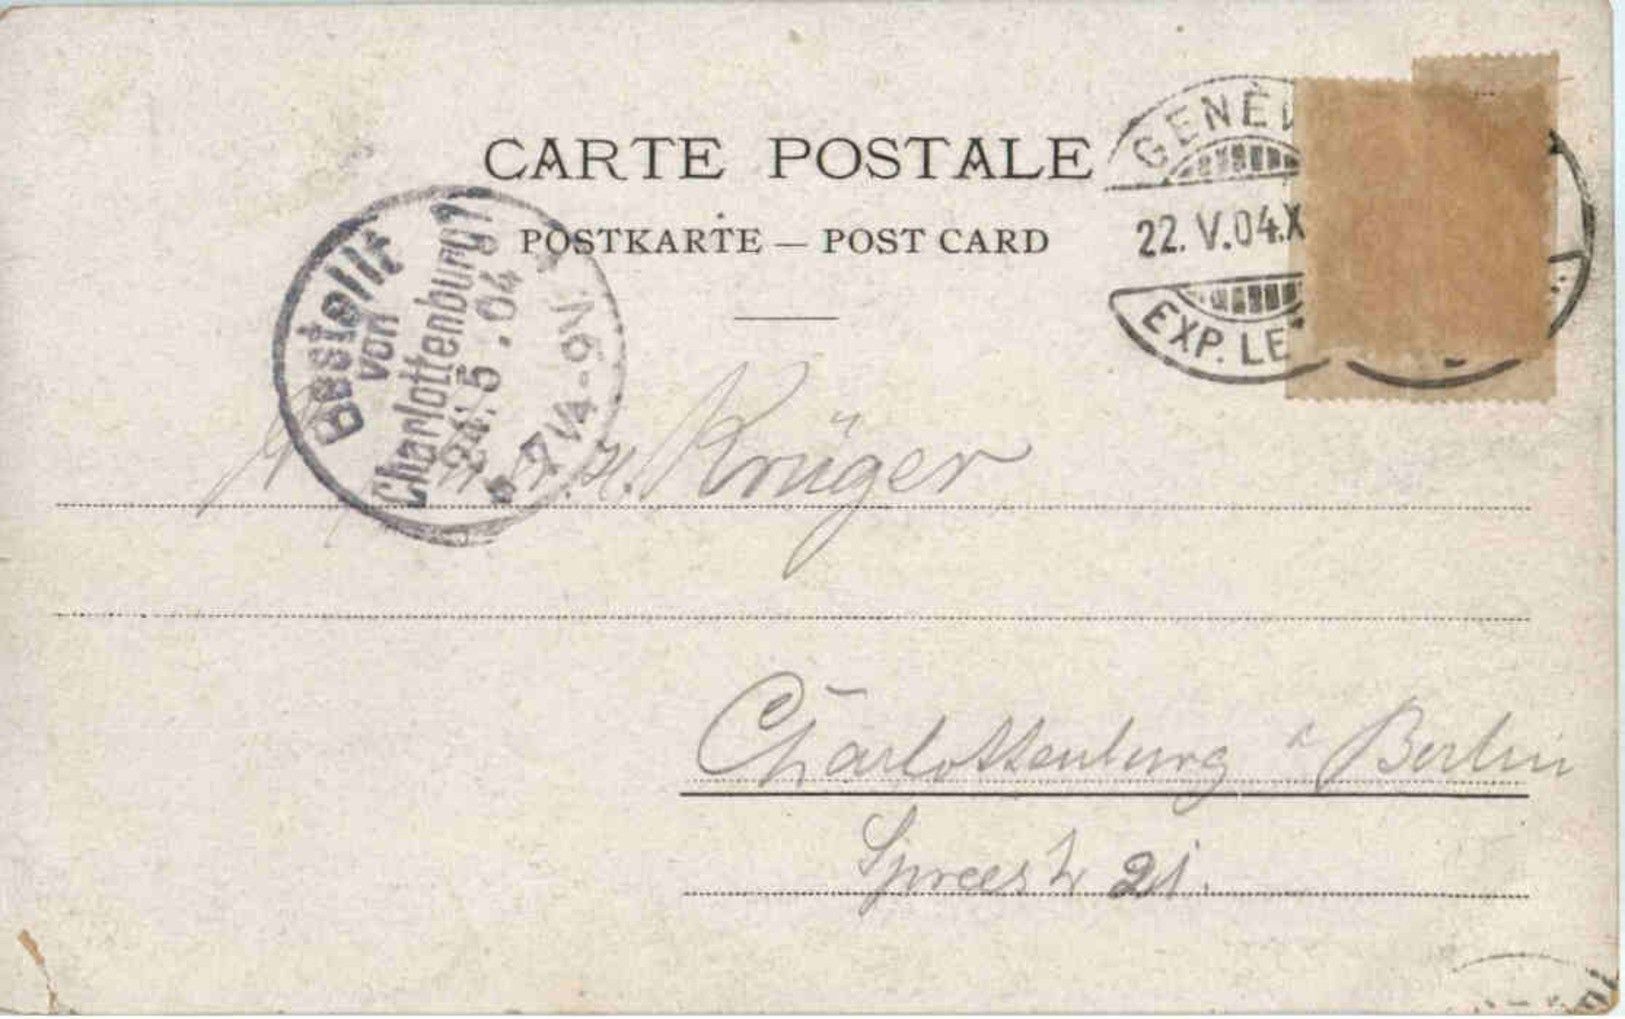 CARTE POSTALE
POSTKARTE — POST CARD
GENÈV
22. V.04.X
EXP. LE
Bestellt
von
Charlottenburg 1
24. 5 .04
7¼-9V
Krüger
Charlottenburg Berlin
Spreestr 21.